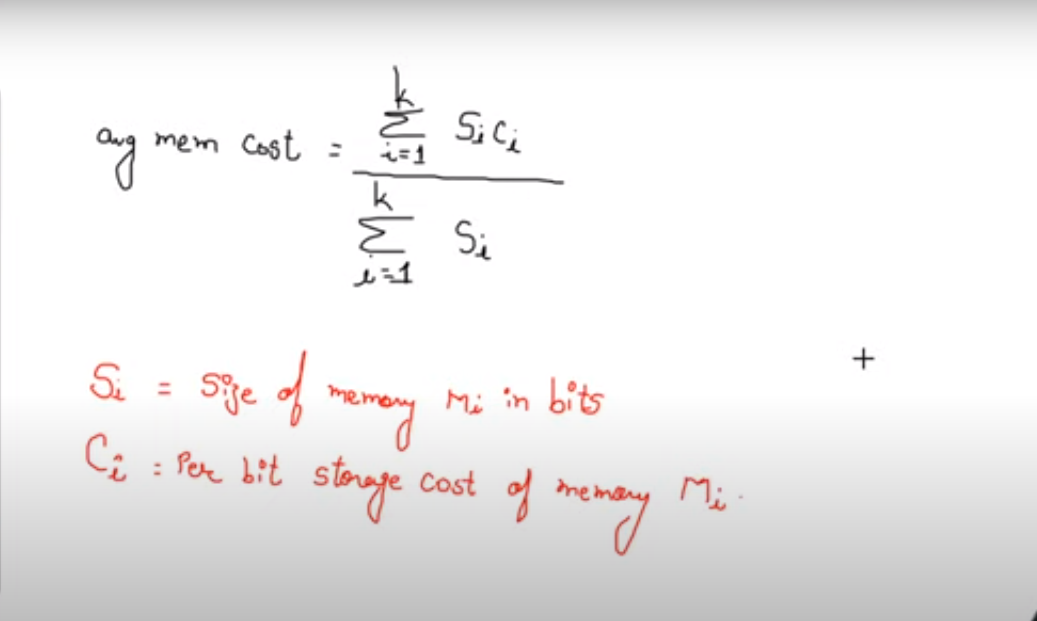 avg mem cost = \frac{\sum_{i=1}^{k} S_i C_i}{\sum_{i=1}^{k} S_i}
S_i = Size of memory M_i in bits
C_i = Per bit storage cost of memory M_i.